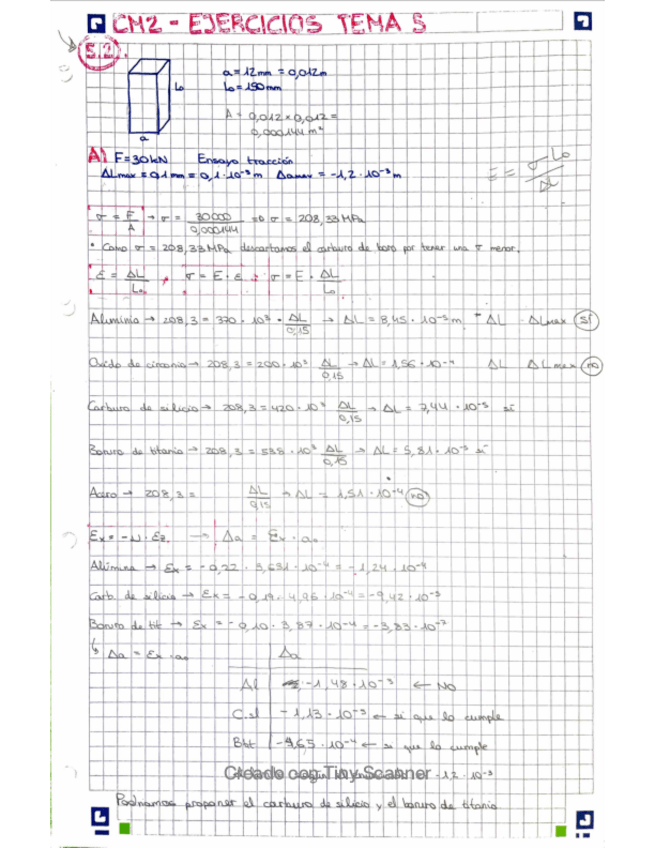 CM2 - EJERCICIOS TEMA 5
5.2.
a = 12mm = 0,012m
Lo = 150mm
Lo
a
A = 0,012 x 0,012 =
0,000144 m²
A) F=30kN Ensayo tracción
ΔLmax = 0,1 mm = 0,1·10⁻³ m Δamax = -1,2·10⁻³ m
E = σ Lo / ΔL
σ = F/A → σ = 30000/0,000144 => σ = 208,33 MPa
• Como σ = 208,33MPa descartamos el carburo de boro por tener una σ menor.
ε = ΔL/Lo , σ = E · ε ∴ σ = E · ΔL/Lo
Alúmina → 208,3 = 370 · 10³ · ΔL/0,15 → ΔL = 8,45 · 10⁻⁵ m ΔL ΔLmax SÍ
Óxido de circonio → 208,3 = 200 · 10³ ΔL/0,15 → ΔL = 1,56 · 10⁻⁴ ΔL ΔLmax no
Carburo de silicio → 208,3 = 420 · 10³ ΔL/0,15 → ΔL = 7,44 · 10⁻⁵ sí
Boruro de titanio → 208,3 = 538 · 10³ ΔL/0,15 → ΔL = 5,81 · 10⁻⁵ sí
Acero → 208,3 = ΔL/0,15 → ΔL = 1,51 · 10⁻⁴ no
Ex = -υ · Ez → Δa = Ex · ao
Alúmina → Ex = -0,22 · 5,631 · 10⁻⁴ = -1,24 · 10⁻⁴
Carb. de silicio → Ex = -0,19 · 4,96 · 10⁻⁴ = -9,42 · 10⁻⁵
Boruro de tit → Ex = -0,10 · 3,87 · 10⁻⁴ =
↳ Δa = Ex · ao Δa
Al -1,48 · 10⁻³ ← NO
C.sl -1,13 · 10⁻³ ← sí que lo cumple
Btit -4,65 · 10⁻⁴ ← sí que lo cumple
Creado con Tiny Scanner -1,2 · 10⁻³
Podríamos proponer el carburo de silicio y el boruro de titanio